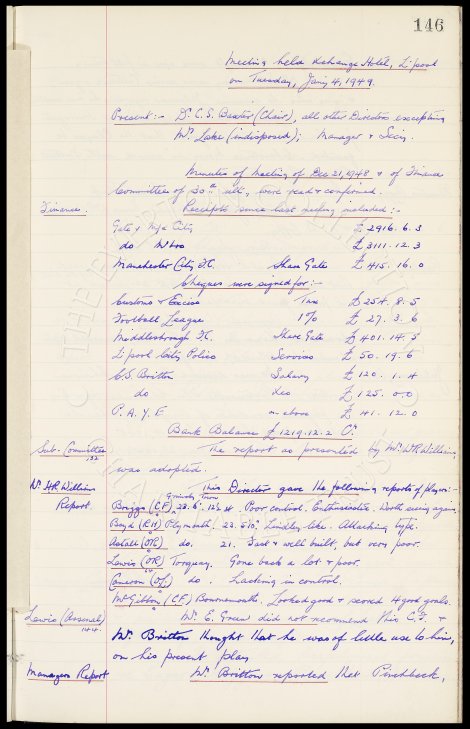 146
Meeting held Exchange Hotel, L'pool
on Tuesday, Jany 4, 1949.
Present:- Dr. C.S. Baxter (Chair), all other Directors excepting
Mr. Lake (indisposed); Manager & Secy.
Minutes of Meeting of Dec 21, 1948 & of Finance
Committee of 30th ult, were read & confirmed.
Finance. Receipts since last meeting included:-
Gate v M/c City £ 2916. 6. 3
do £ 3111. 12. 3
Manchester City F.C. Share Gate £ 415. 16. 0
Cheques were signed for:-
Customs & Excise Tax £ 254. 8. 5
Football League 1% £ 27. 3. 6
Middlesbrough F.C. Share Gate £ 401. 14. 5
L'pool City Police Services £ 50. 19. 6
C.S. Britton Salary £ 120. 1. 4
do £ 125. 0. 0
P.A.Y.E as above £ 41. 12. 0
Bank Balance £ 1219. 12. 2 Cr.
Sub. Committee The report as presented by Mr. W.R. Williams,
was adopted.
Mr. Williams This Director gave the following reports of players:-
Report. Briggs (C.F.) Grimsby Town 23. 6' Poor control. Enthusiastic. Worth seeing again.
Boyd (RH) Plymouth. 23. Lindley-like. Attacking type.
Astall (OR) do. 21. Fast & well built, but very poor.
Lewis (OR) Torquay. Gone back a lot & poor.
Cameron do. Lacking in control.
McGibbon (CF) Bournemouth. Looked good & scored 4 good goals.
Lewis (Arsenal) Mr. E. Green did not recommend this C.F. &
Mr. Britton thought that he was of little use to him,
on his present play
Managers Report Mr. Britton reported that Pinchbeck,